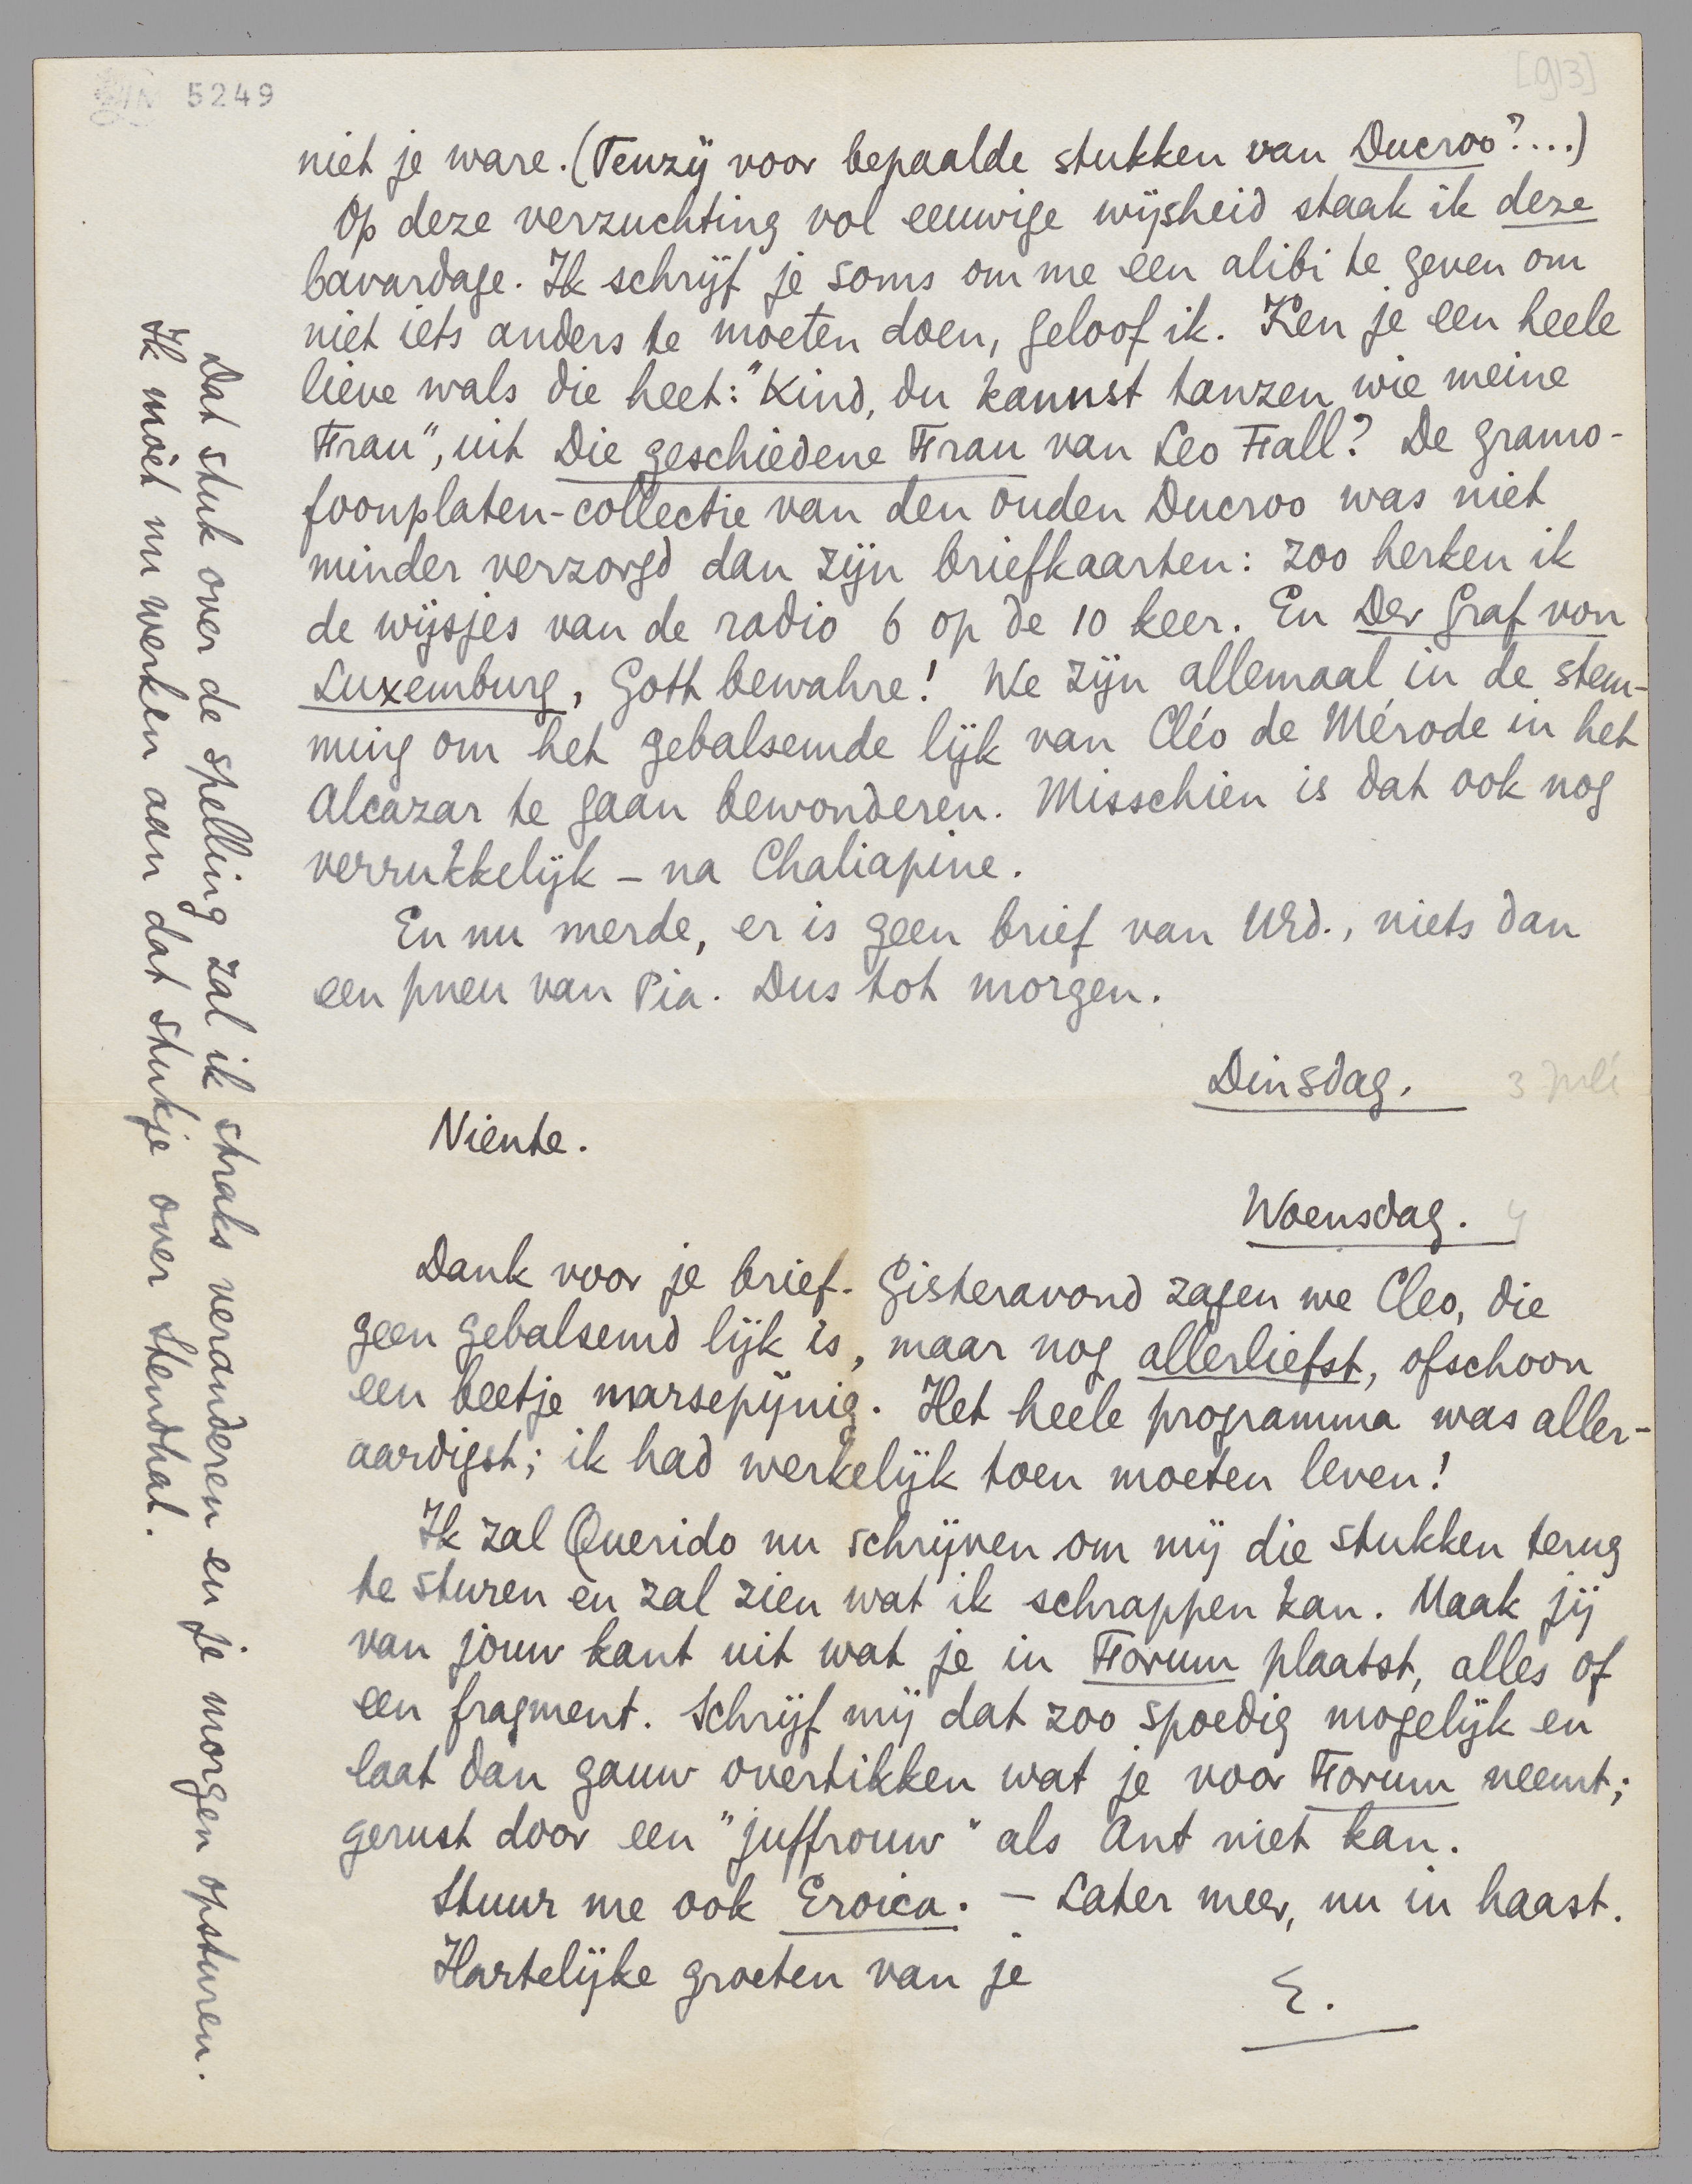 5249
[913]
niet je ware. (Tenzij voor bepaalde stukken van Ducroo?....)
Op deze verzuchting vol eeuwige wijsheid staak ik deze
bavardage. Ik schrijf je soms om me een alibi te geven om
niet iets anders te moeten doen, geloof ik. Ken je een heele
lieve wals die heet: "Kind, du kannst tanzen wie meine
Frau", uit Die geschiedene Frau van Leo Fall? De gramo-
foonplaten-collectie van den ouden Ducroo was niet
minder verzorgd dan zijn briefkaarten: zoo herken ik
de wijsjes van de radio 6 op de 10 keer. En Der Graf von
Luxemburg, Gott bewahre! We zijn allemaal in de stem-
ming om het gebalsemde lijk van Cléo de Mérode in het
Alcazar te gaan bewonderen. Misschien is dat ook nog
verrukkelijk – na Chaliapine.
En nu merde, er is geen brief van Urd., niets dan
een pneu van Pia. Dus tot morgen.
Dinsdag. 3 Juli
Niente.
Woensdag. 4
Dank voor je brief. Gisteravond zagen we Cleo, die
geen gebalsemd lijk is, maar nog allerliefst, ofschoon
een beetje marsepijnig. Het heele programma was aller-
aardigst; ik had werkelijk toen moeten leven!
Ik zal Querido nu schrijven om mij die stukken terug
te sturen en zal zien wat ik schrappen kan. Maak jij
van jouw kant uit wat je in Forum plaatst, alles of
een fragment. Schrijf mij dat zoo spoedig mogelijk en
laat dan gauw overtikken wat je voor Forum neemt;
gerust door een "juffrouw" als Ant niet kan.
Stuur me ook Eroica. – Later meer, nu in haast.
Hartelijke groeten van je
E.
Dat stuk over de spelling zal ik straks veranderen en je morgen opsturen.
Ik moet nu werken aan dat stukje over Stendhal.